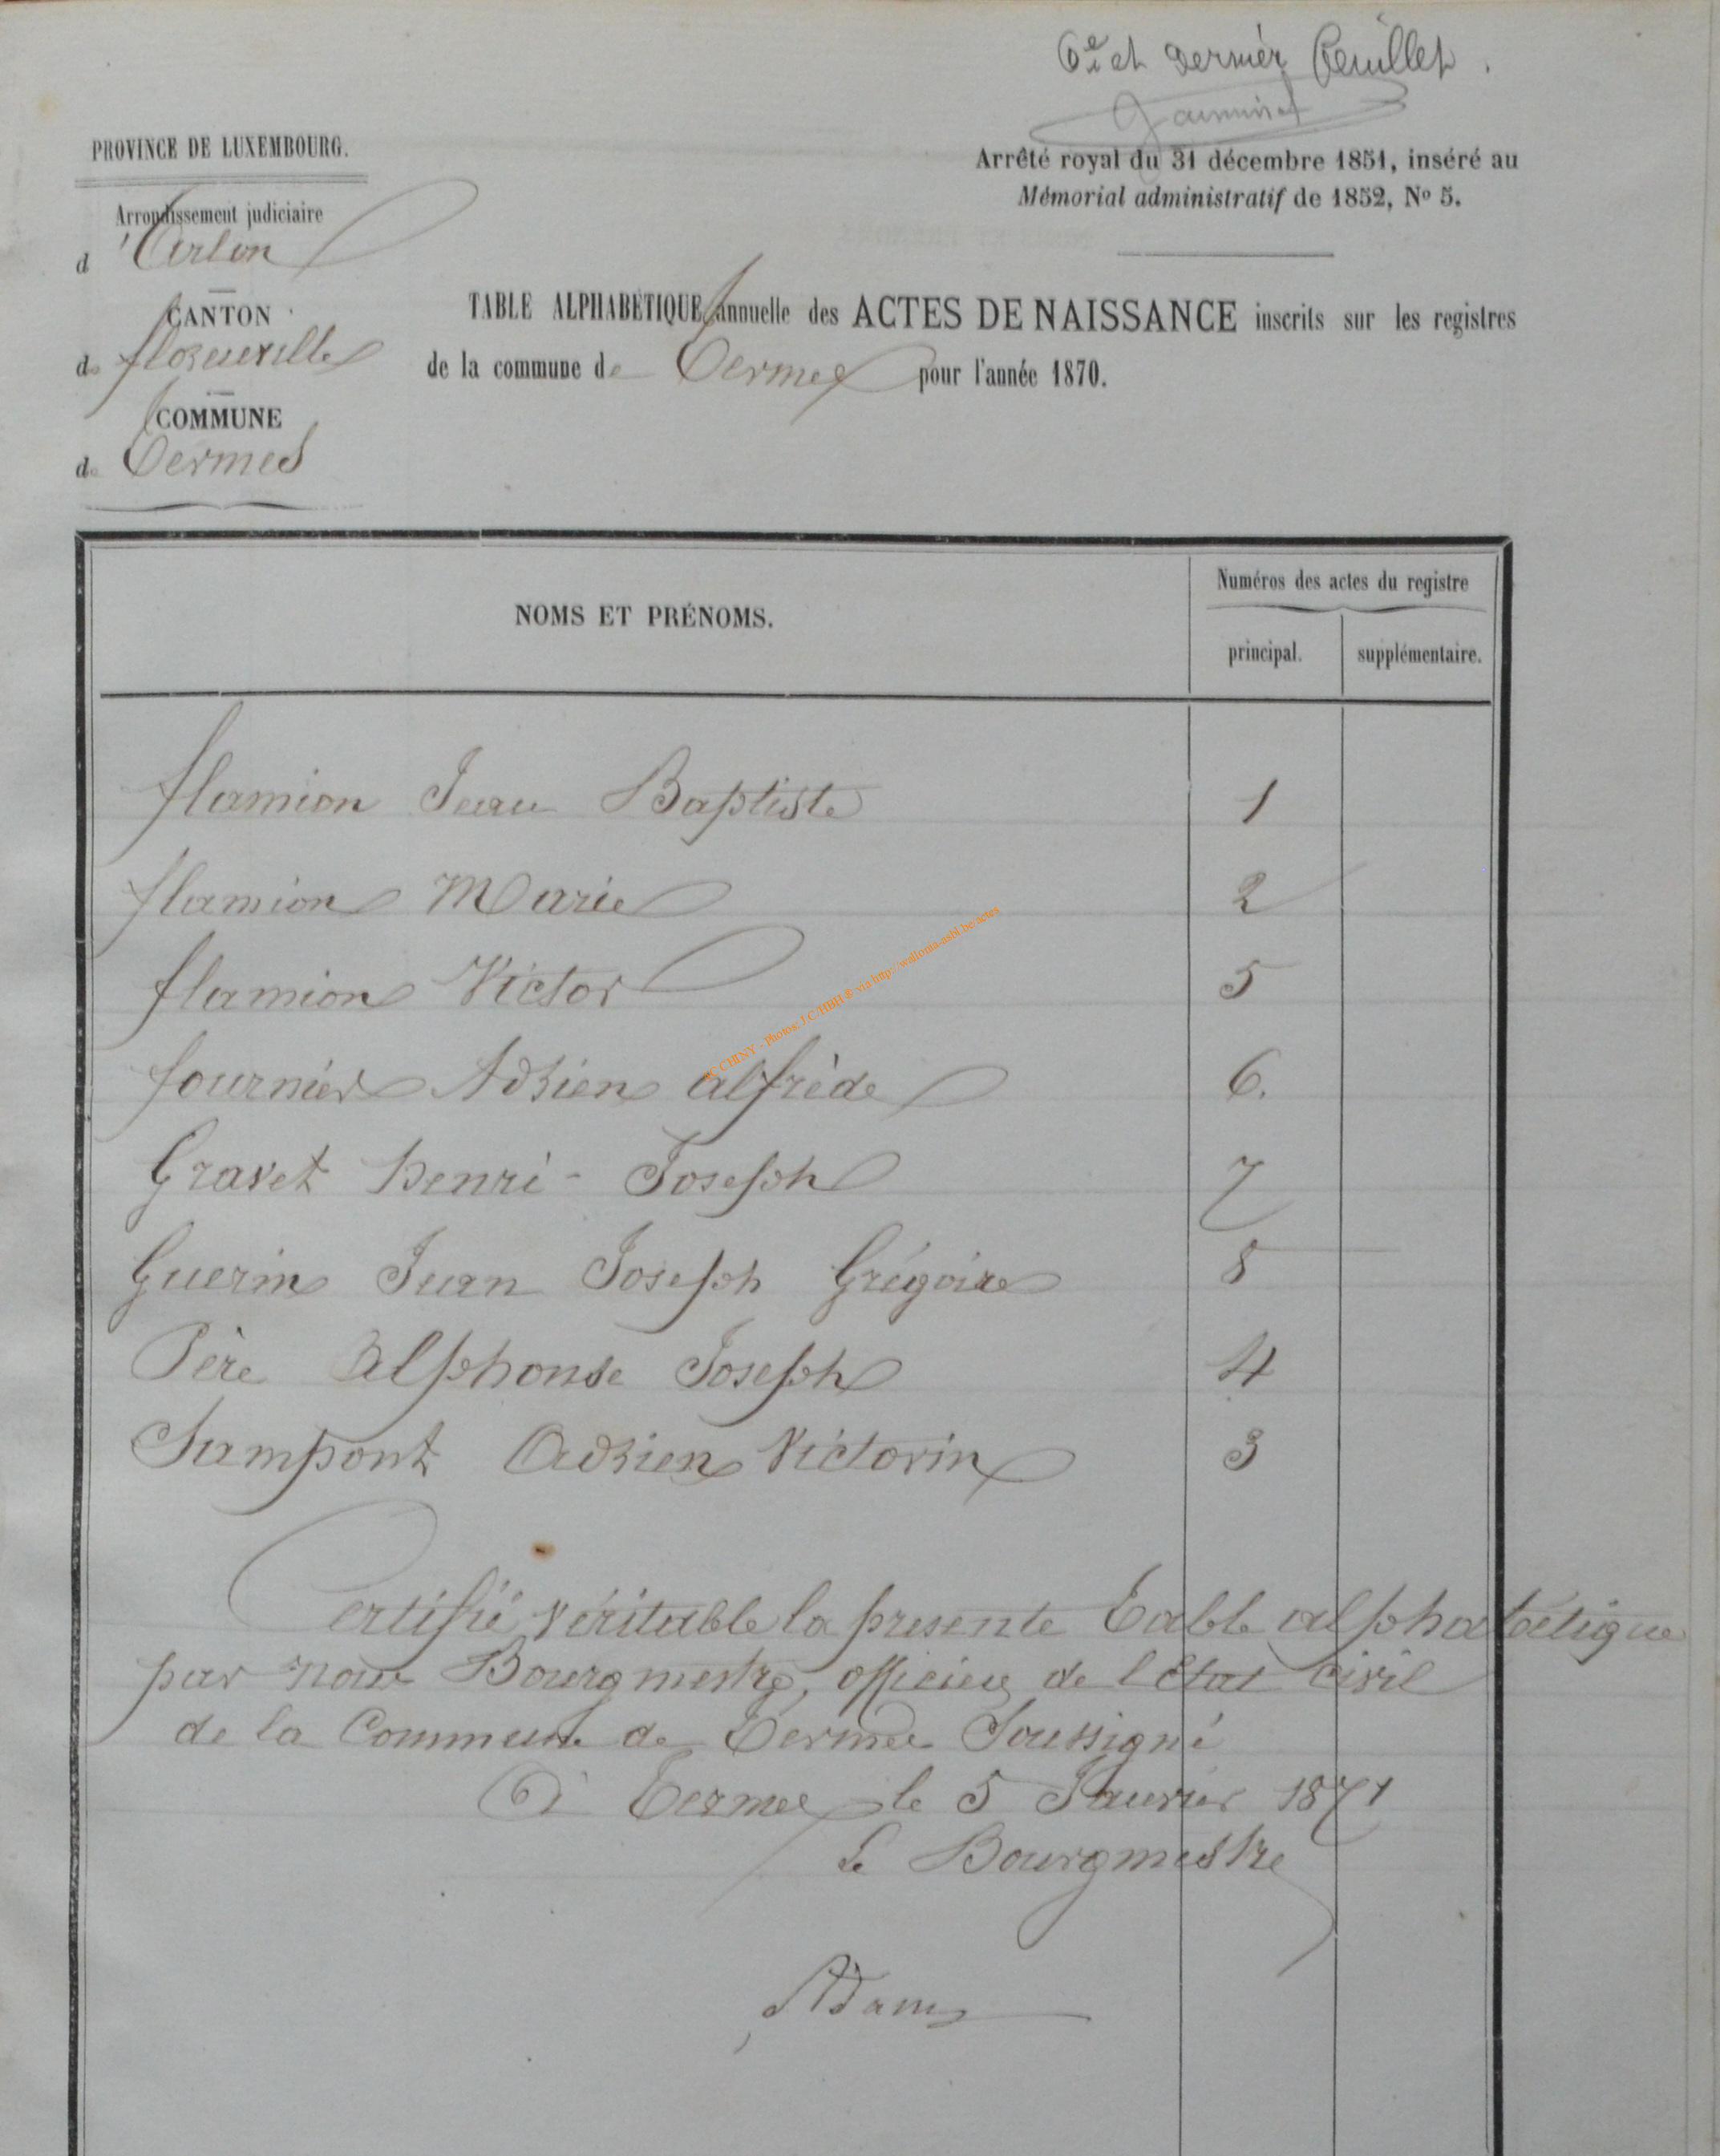 6e et dernier feuillet.
PROVINCE DE LUXEMBOURG.
Arrêté royal du 31 décembre 1851, inséré au
Mémorial administratif de 1852, No 5.
Arrondissement judiciaire
d'Arlon
CANTON
de florenville
COMMUNE
de Termes
TABLE ALPHABÉTIQUE annuelle des ACTES DE NAISSANCE inscrits sur les registres
de la commune de Termes pour l'année 1870.
NOMS ET PRÉNOMS.
Numéros des actes du registre
principal. supplémentaire.
flamion Jean Baptiste 1
flamion Marie 2
flamion Victor 5
fournier Adrien alfrède 6.
Gravet henri - Joseph 7
Guerin Jean Joseph Grégoire 8
Père alphonse Joseph 4
Sampont Adrien Victorin 3
© CHINY - Photos: J.C/HBH ® via http://wallonia-asbl.be/actes
Certifié véritable la presente Table alphabétique
par nous Bourgmestre, officier de l'Etat civil
de la Commune de Termes Soussigné
à Termes le 5 Janvier 1871
Le Bourgmestre
Adam